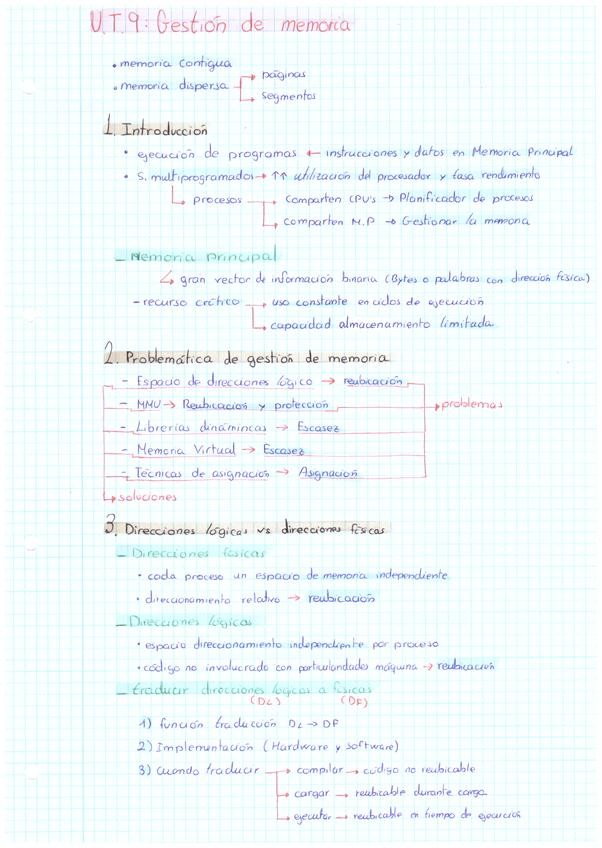 U.T.9: Gestión de memoria
• memoria contigua
• memoria dispersa → páginas
→ segmentos
1. Introducción
• ejecución de programas ← instrucciones y datos en Memoria Principal
• S. multiprogramados → ↑↑ utilización del procesador y tasa rendimiento
↳ procesos → Comparten CPU's → Planificador de procesos
→ Comparten M.P → Gestionar la memoria
- Memoria principal
↳ gran vector de información binaria (Bytes o palabras con dirección física)
- recurso crítico → uso constante en ciclos de ejecución
→ capacidad almacenamiento limitada
2. Problemática de gestión de memoria
- Espacio de direcciones lógico → reubicación
- MMU → Reubicación y protección → problemas
- Librerías dinámincas → Escasez
- Memoria Virtual → Escasez
- Técnicas de asignación → Asignación
↳ soluciones
3. Direcciones lógicas vs direcciones físicas
- Direcciones físicas
• cada proceso un espacio de memoria independiente
• direccionamiento relativo → reubicación
- Direcciones lógicas
• espacio direccionamiento independiente por proceso
• código no involucrado con particularidades máquina → reubicación
- traducir direcciones lógicas a físicas
(DL) (DF)
1) función traducción DL → DF
2) Implementación (Hardware y software)
3) Cuando traducir → compilar → código no reubicable
→ cargar → reubicable durante carga
→ ejecutar → reubicable en tiempo de ejecución